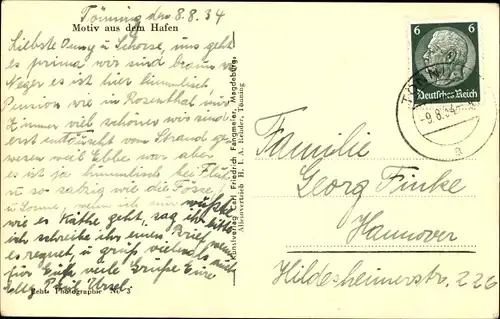 Tönning den 8.8.34
Motiv aus dem Hafen
Liebste Omy u Schorse, uns geht
es prima wir sind braun w
Neger es ist hier himmlisch
Pension wie in Rosenthal nur
Zimmer viel schöner wir sind
erst enttäuscht vom Strand ge
wesen weil Ebbe war aber
es ist ja himmlisch bei Flut
u so salzig wie die
u Sonne, wenn ich nur wüßte
wie es Käthe geht, sag ihr bitte
ich schreibe ihr einen Brief wenn
es regnet, u grüß vielmals
für Euch viele Grüße Eure
Ursel
Echte Photographie Nr. 3
Kunstverlag Carl Friedrich Fangmeier, Magdeburg.
Alleinvertrieb H. I. A. Tönning
6 6
Deutsches Reich
TÖNNING
-9.8.34
a
Familie
Georg Finke
Hannover
Hildesheimerstr, 226